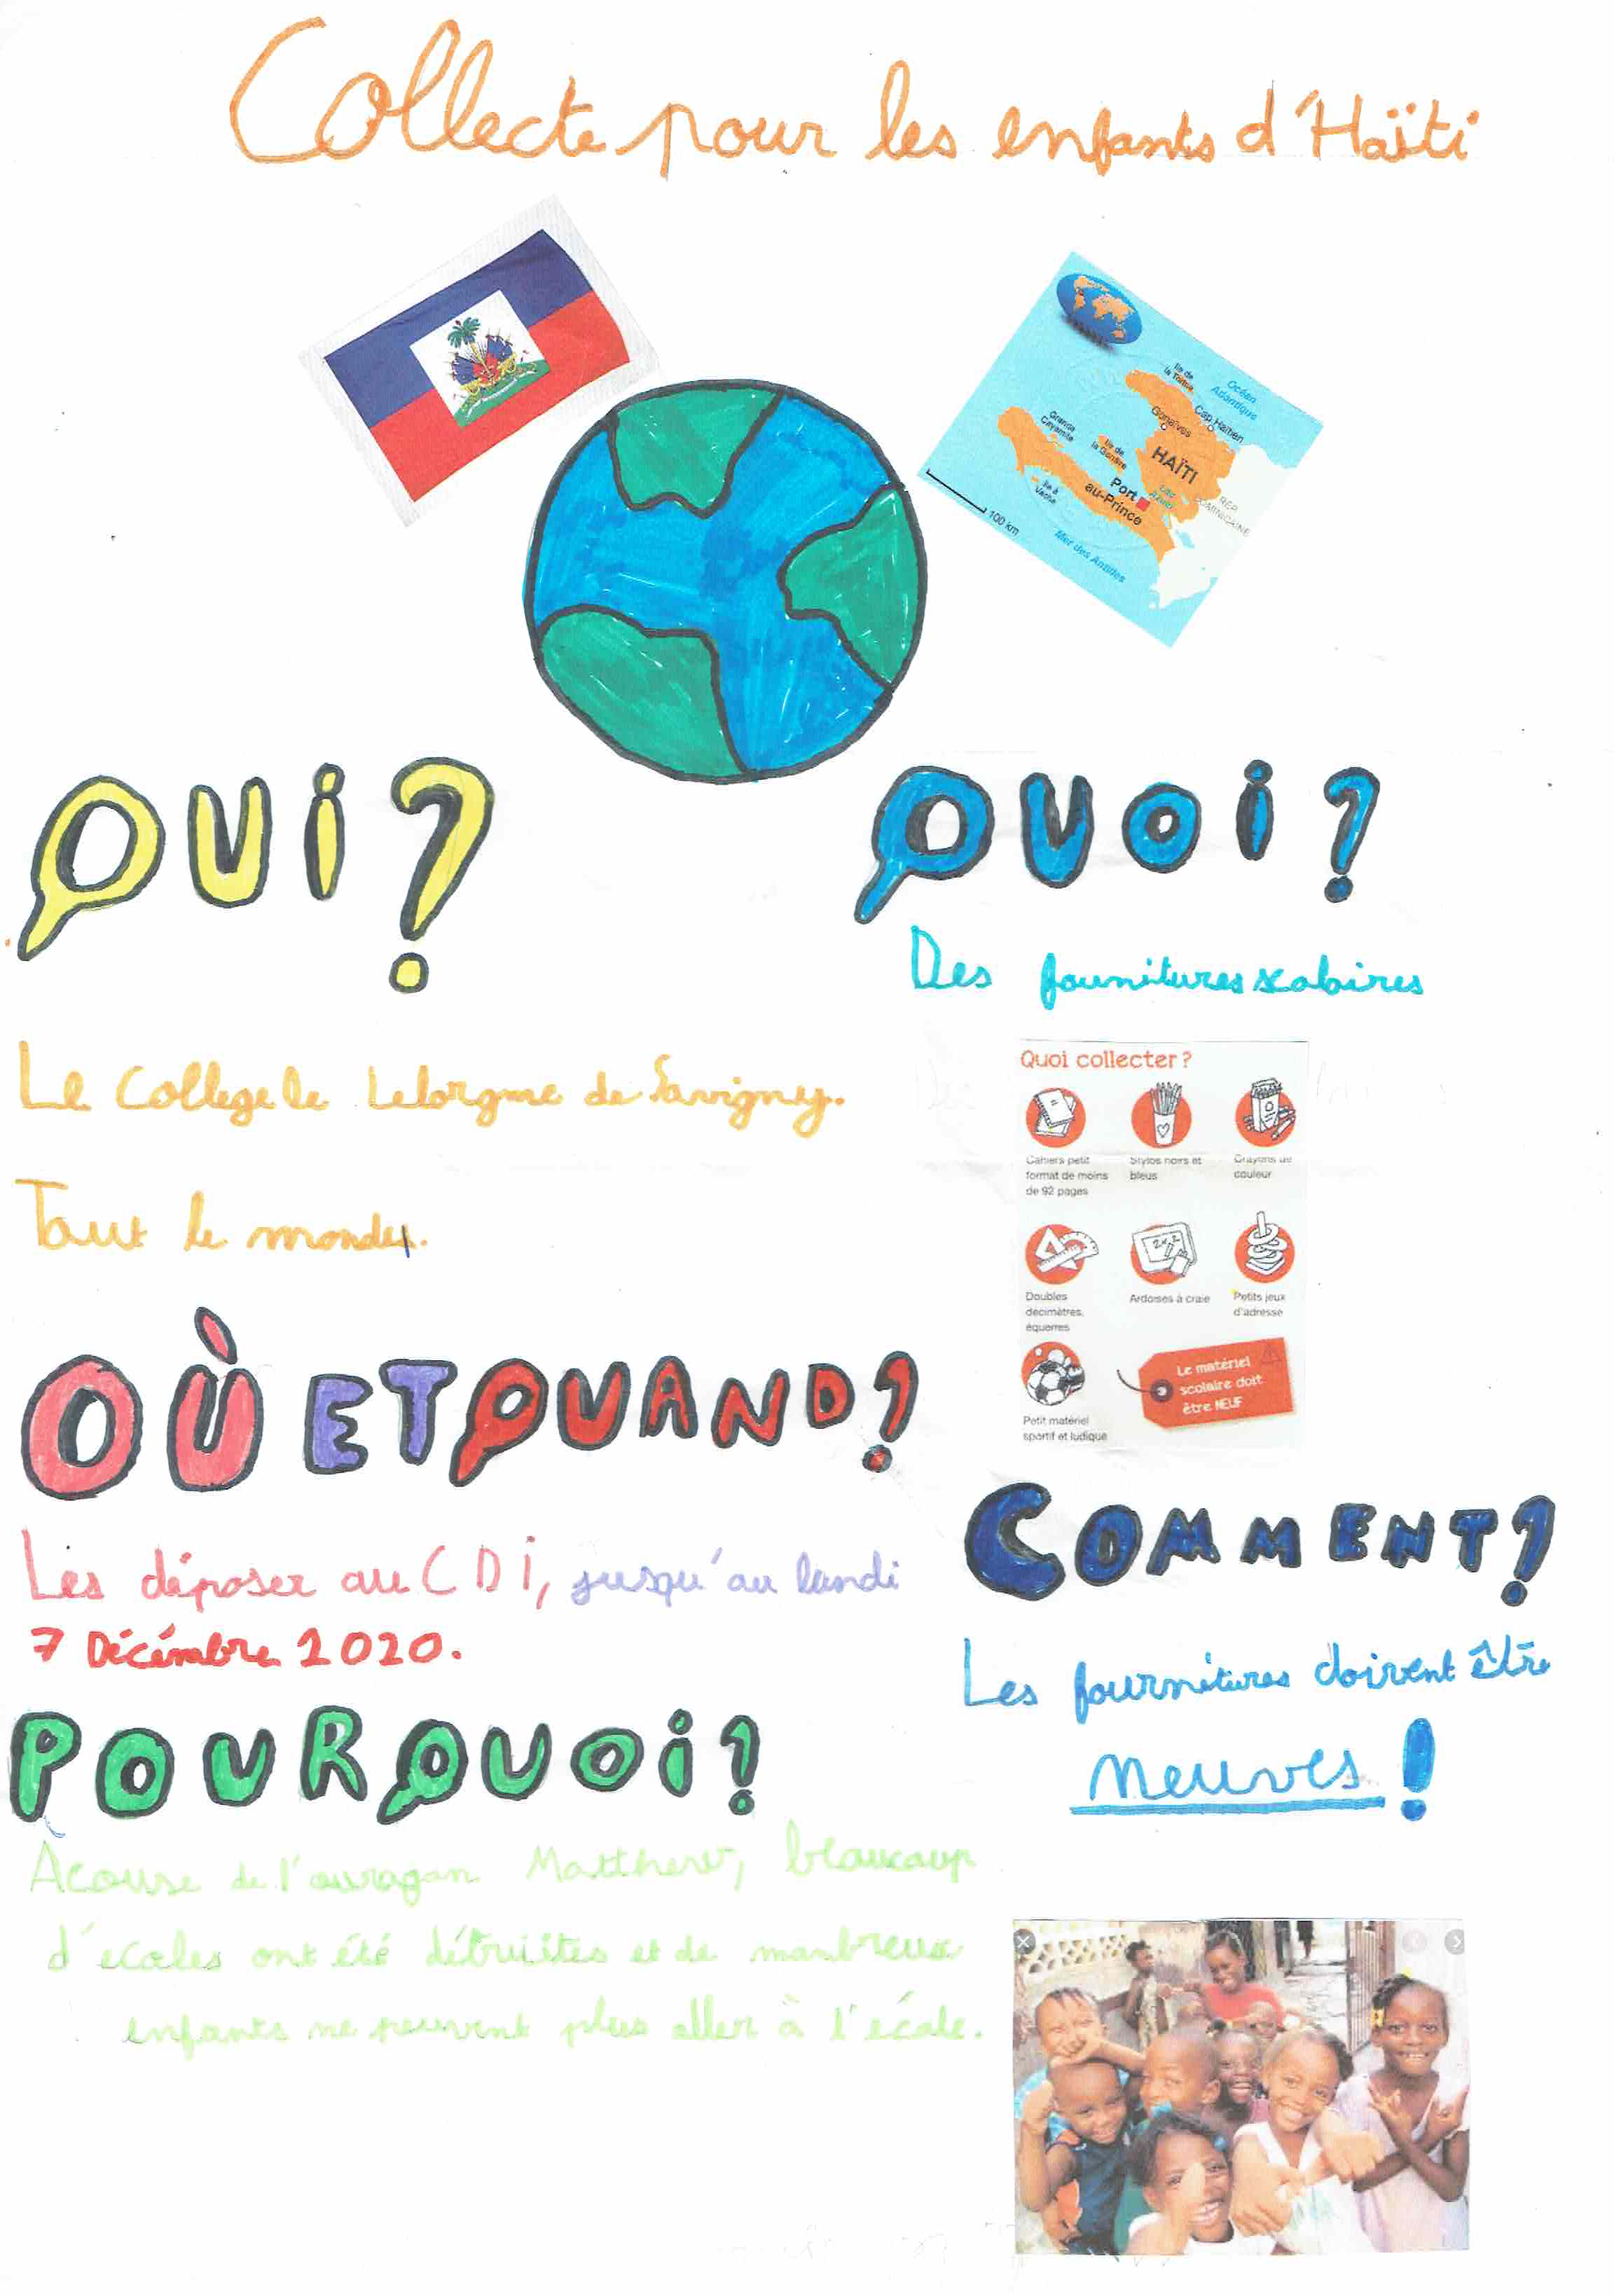 Collecte pour les enfants d'Haïti
Océan
Atlantique
Ile de
la Tortue
Cap Haïtien
Gonaïves
Grande
Cayemite
Ile de
la Gonâve
HAÏTI
Port
au-Prince
Ile à
Vache
RÉP
DOMINICAINE
100 km
Mer des Antilles
QUi?
Le College le Lelorgne de Savigny.
Tout le monde.
QUOi?
Des founitures scolaires
Quoi collecter ?
Cahiers petit
format de moins
de 92 pages
Stylos noirs et
bleus
Crayons de
couleur
Doubles
décimètres,
équerres
Ardoises à craie
Petits jeux
d'adresse
Petit matériel
sportif et ludique
Le matériel
scolaire doit
être NEUF
OÙ ET QUAND?
Les déposer au CDI, jusqu'au lundi
7 Décémbre 2020.
COMMENT?
Les fournitures doivent être
neuves !
POURQUOi?
A couse de l'ouragan Matthew, beaucoup
d'ecoles ont été détruites et de nombreux
enfants ne peuvent plus aller à l'école.